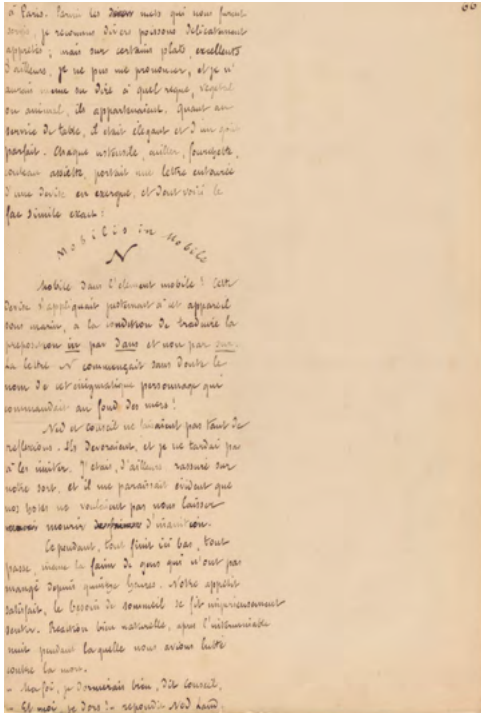 66
à Paris. Parmi les divers mets qui nous furent
servis, je reconnus divers poissons délicatement
apprêtés ; mais sur certains plats, excellents
d'ailleurs, je ne pus me prononcer, et je n'
aurais même su dire à quel règne, végétal
ou animal, ils appartenaient. Quant au
service de table, il était élégant et d'un goût
parfait. Chaque ustensile, cuiller, fourchette,
couteau assiette, portait une lettre entourée
d'une devise en exergue, et dont voici le
fac simile exact :
Mobilis in Mobile
N
Mobile dans l'élément mobile ! Cette
devise s'appliquait justement à cet appareil
sous marin, à la condition de traduire la
préposition in par dans et non par sur.
La lettre N commençait sans doute le
nom de cet énigmatique personnage qui
commandait au fond des mers !
Ned et Conseil ne faisaient pas tant de
réflexions. Ils dévoraient, et je ne tardai pas
à les imiter. J'étais, d'ailleurs, rassuré sur
notre sort, et il me paraissait évident que
nos hôtes ne voulaient pas nous laisser
mourir d'inanition.
Cependant, tout finit ici bas, tout
passe, même la faim de gens qui n'ont pas
mangé depuis quinze heures. Notre appétit
satisfait, le besoin de sommeil se fit impérieusement
sentir. Réaction bien naturelle, après l'interminable
nuit pendant laquelle nous avions lutté
contre la mort.
- Ma foi, je dormirais bien, dit Conseil,
- Et moi, je dors ! - répondit Ned Land.